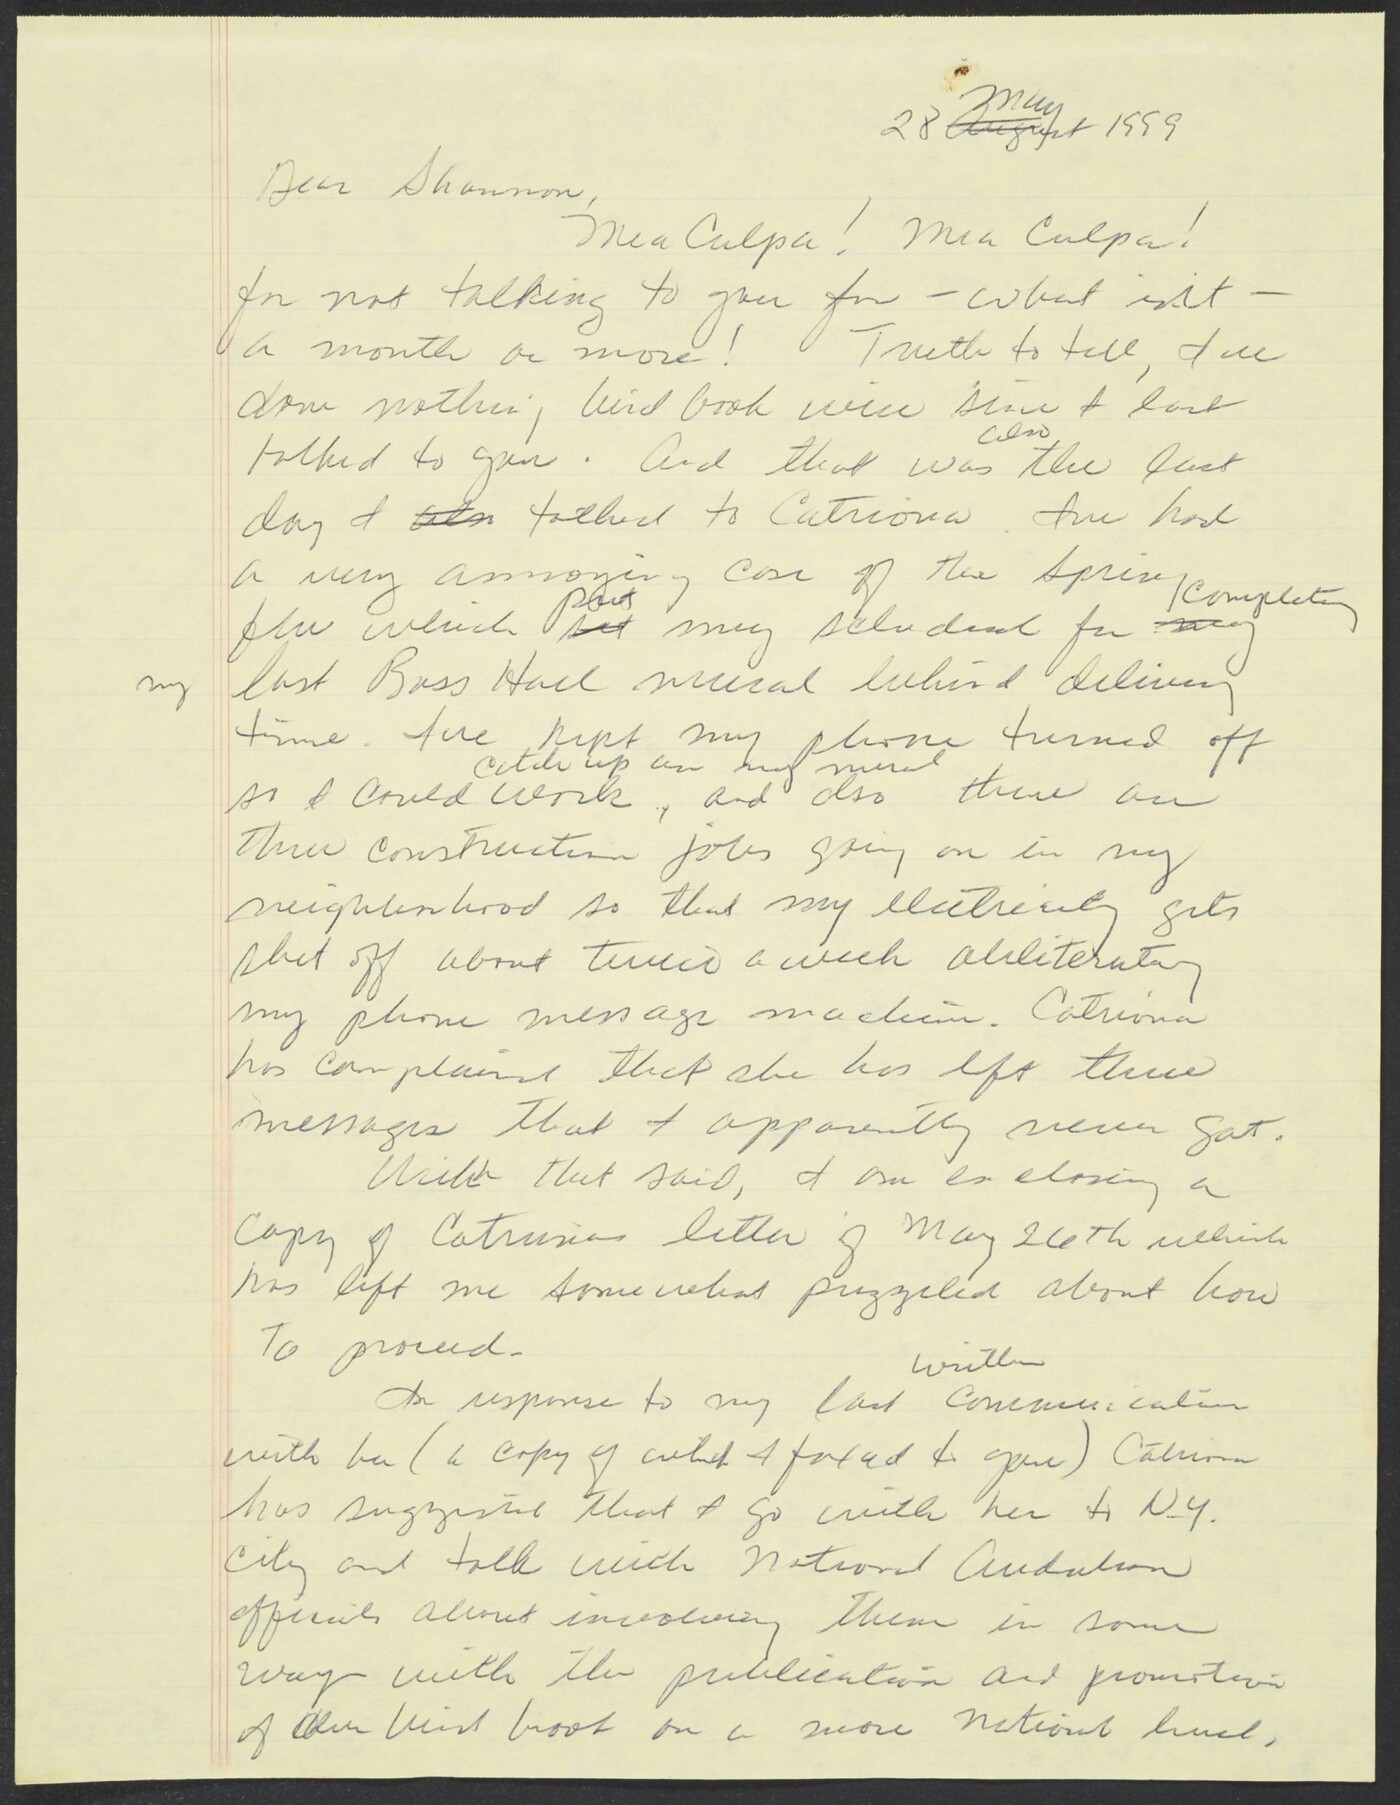 May
28 August 1999
Dear Shannon,
Mea Culpa! Mea Culpa!
for not talking to you for – what is it –
a month or more! Truth to tell, I've
done nothing bird book wise since I last
also
talked to you. And that was the last
day I also talked to Catriona. I've had
a very annoying case of the Spring
puts completing
flu which set my schedual for my
my last Bass Hall mural behind delivery
time. I've kept my phone turned off
catch up on my mural
so I could work, and also there are
three construction jobs going on in my
neighborhood so that my electricity gets
shut off about twice a week obliterating
my phone message machine. Catriona
has complained that she has left three
messages that I apparently never got.
With that said, I am enclosing a
copy of Catrionas letter of May 26th which
has left me somewhat puzzeled about how
to proceed.
written
In response to my last communication
with her (a copy of which I faxed to you) Catriona
has suggested that I go with her to N.Y.
City and talk with National Audubon
officials about involving them in some
way with the publication and promotion
of our bird book on a more national level.